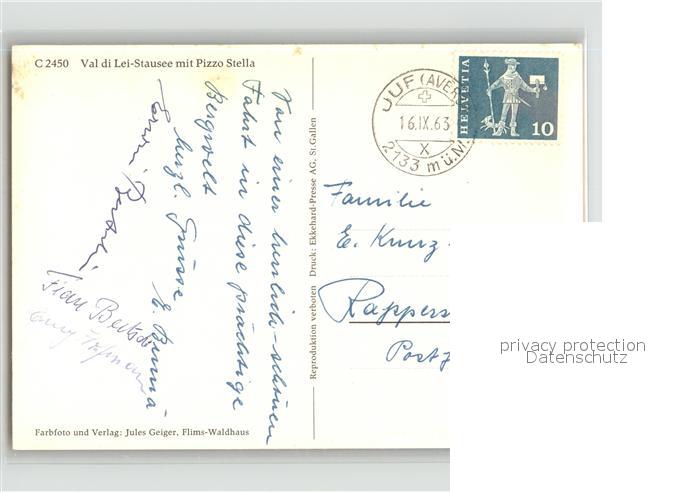 C 2450 Val di Lei-Stausee mit Pizzo Stella
Von einer herrlich-schönen
Fahrt in diese prächtige
Bergwelt
herzl. Grüsse
Frau Bertsch
Farbfoto und Verlag: Jules Geiger, Flims-Waldhaus
Reproduktion verboten Druck: Ekkehard-Presse AG, St. Gallen
JUUF (AVER
16.IX.63
X
2133 m ü.M.
HELVETIA
10
Familie
E. Kunz-
Rappers
Postf
privacy protection
Datenschutz